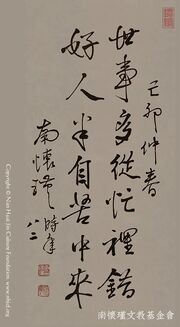 己卯仲春
世事多從忙裡錯
好人半自苦中來
南懷瑾
時年八二
Copyright © Nan Huai Jin Culture Foundation, www.nhjcf.org
南懷瑾文教基金會